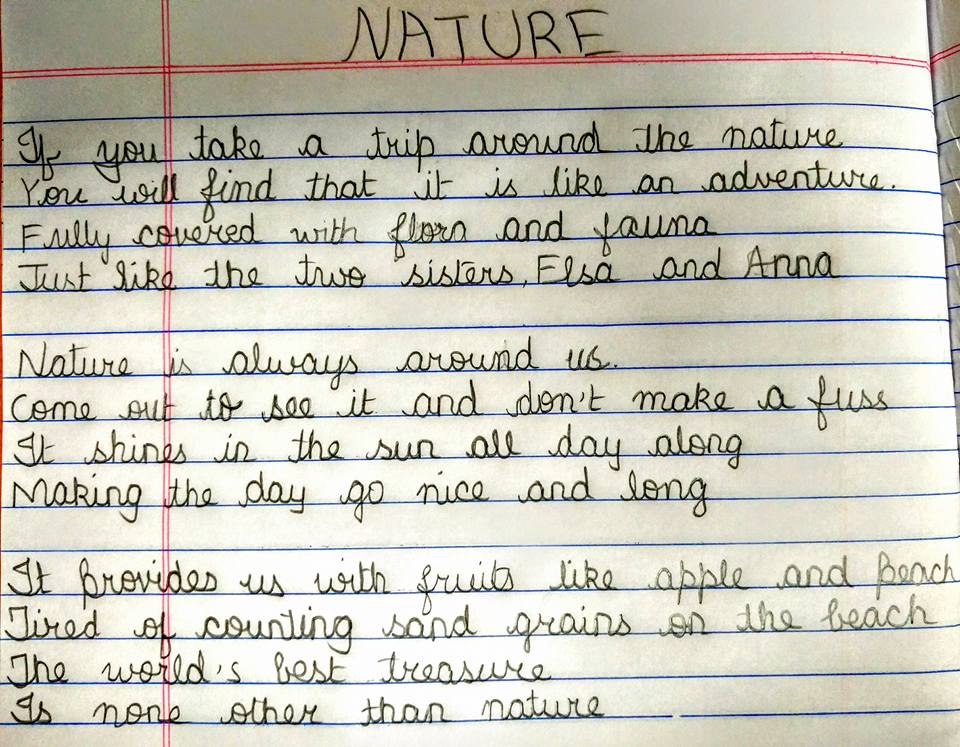 NATURE
If you take a trip around the nature
You will find that it is like an adventure.
Fully covered with flora and fauna
Just like the two sisters, Elsa and Anna
Nature is always around us.
Come out to see it and don't make a fuss
It shines in the sun all day along
Making the day go nice and long
It provides us with fruits like apple and peach
Tired of counting sand grains on the beach
The world's best treasure
Is none other than nature